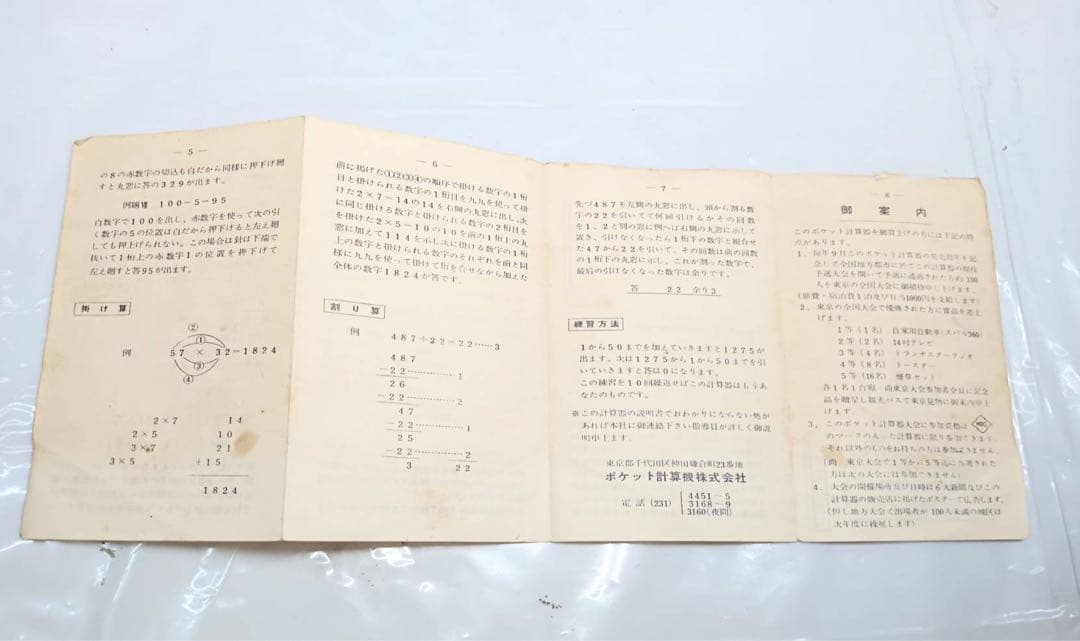 — 5 —
の8の赤数字の切込も白だから同様に押下げ廻
すと丸窓に答の329が出ます。
例題Ⅶ 100−5=95
白数字で100を出し、赤数字を使って次の引
く数字の5の位置は白だから押下げると左え廻
しても押上げられない。この場合は針は下端で
抜いて1桁上の赤数字1の位置を押下げて
左え廻すと答95が出ます。
掛け算
②
①
例 57 × 32=1824
③
④
2×7 14
2×5 10
3×7 21
3×5 +15
1824
— 6 —
前に掲げた①②③④の順序で掛ける数字の1桁
目と掛けられる数字の1桁目を九九を使って掛
けた2×7=14の14を右側の丸窓に出し、次
に同じ掛ける数字と掛けられる数字の2桁目を
を掛けた2×5=10の10を前の1桁上の丸
窓に加えて114を示し次に掛ける数字の1桁
上の数字と掛けられる数字のそれぞれを前と同
様に九九を使って掛けて桁を合せながら加えた
全体の数字1824が答です。
割り算
例
487÷22=22……3
487
−22……………1
26
−22……………2
47
−22……………1
25
−22……………2
3 22
— 7 —
先づ487を左側の丸窓に出し、頭から割る数
字の22を引いてて何回引けるかその回数
を1、2と別の窓に例へば右側の丸窓に示して
置き、引けなくなったら1桁下の数字と組合せ
た47から22を引いて、その回数は前の回数
の1桁下の丸窓に示し、これが割った数字で、
最后の引けなくなった数字は余りです。
答 22 余り3
練習方法
1から50までを加えていきますと1275が
出ます。次は1275から1から50までを引
いていきますと答は0になります。
この練習を10回繰返せばこの計算器はもうあ
なたのものです。
※この計算器の説明書でおわかりにならない処が
あれば本社に御連絡下さい指導員が詳しく御説
明申上ます。
東京都千代田区神田鎌倉町23番地
ポケット計算機株式会社
電話(231)
4451−5
3168−9
3160(夜間)
— 8 —
御案内
このポケット計算器を御買上の方には下記の特
点があります。
1. 毎年9月このポケット計算器の発売周年を記
念して全国地方都市に於てこの計算器の競技
予選大会を開いて予選に通過された方約100
人を東京の全国大会に御招待申し上げます。
(旅費・宿泊費1泊及び日当1000円を支給します)
2. 東京の全国大会で優勝された方に賞品を差上
げます。
1等(1名) 自家用自動車(スバル360)
2等(2名) 14吋テレビ
3等(4名) トランジスターラジオ
4等(8名) トースター
5等(16名) 煙草セット
各1名1台宛 尚東京大会参加者全員に記念
品を贈呈し観光バスで東京見物に御案内申上
げます。
3. このポケット計算器大会に参加資格は
のマークの入った計算器に限り参加できます。
それ以外のものをお持ちの方は参加できません。
(尚 東京大会で1等から5等迄に当選された
方は次の大会には参加できません)
4. 大会の開催場所及び日時は6大新聞及びこの
計算器の販売店に掲げたポスターで広告します。
(但し地方大会で出場者が100人未満の地区は
次年度に繰延します)